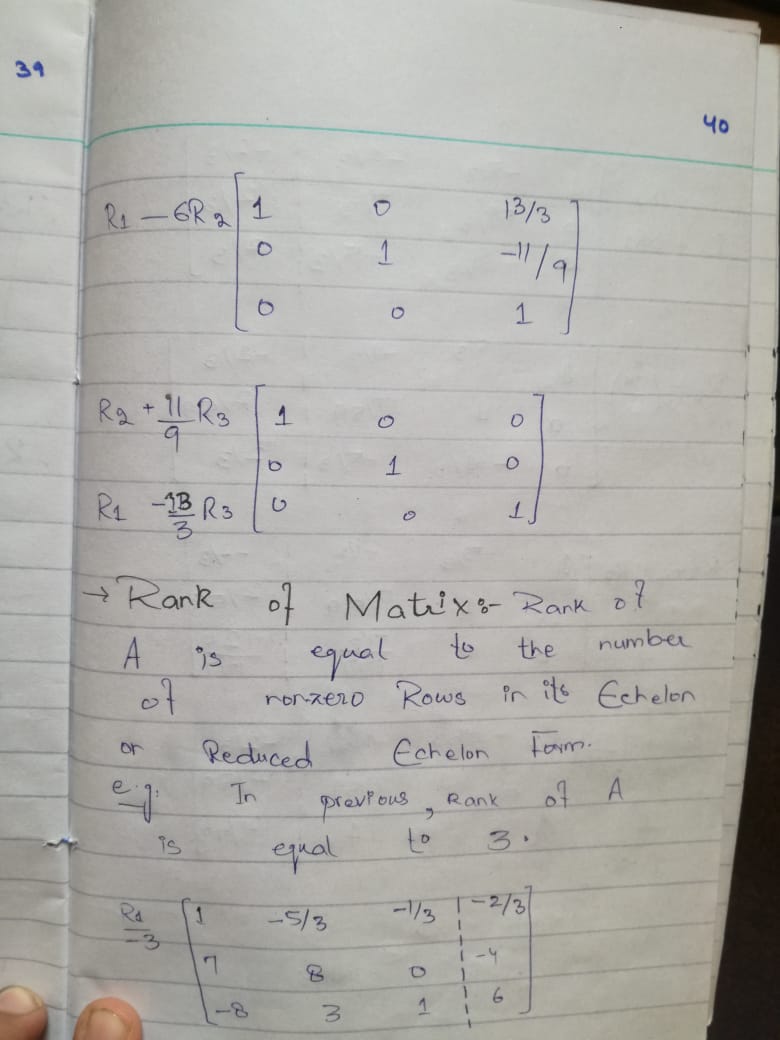 39
40
R1 – 6R2 [ 1 0 13/3
0 1 -11/9
0 0 1 ]
R2 + 11/9 R3 [ 1 0 0
0 1 0
R1 -13/3 R3 0 0 1 ]
→ Rank of Matrix:- Rank of
A is equal to the number
of non-zero Rows in its Echelon
or Reduced Echelon Form.
e.g. In previous, Rank of A
is equal to 3.
R1/-3 [ 1 -5/3 -1/3 | -2/3
7 8 0 | -4
-8 3 1 | 6 ]